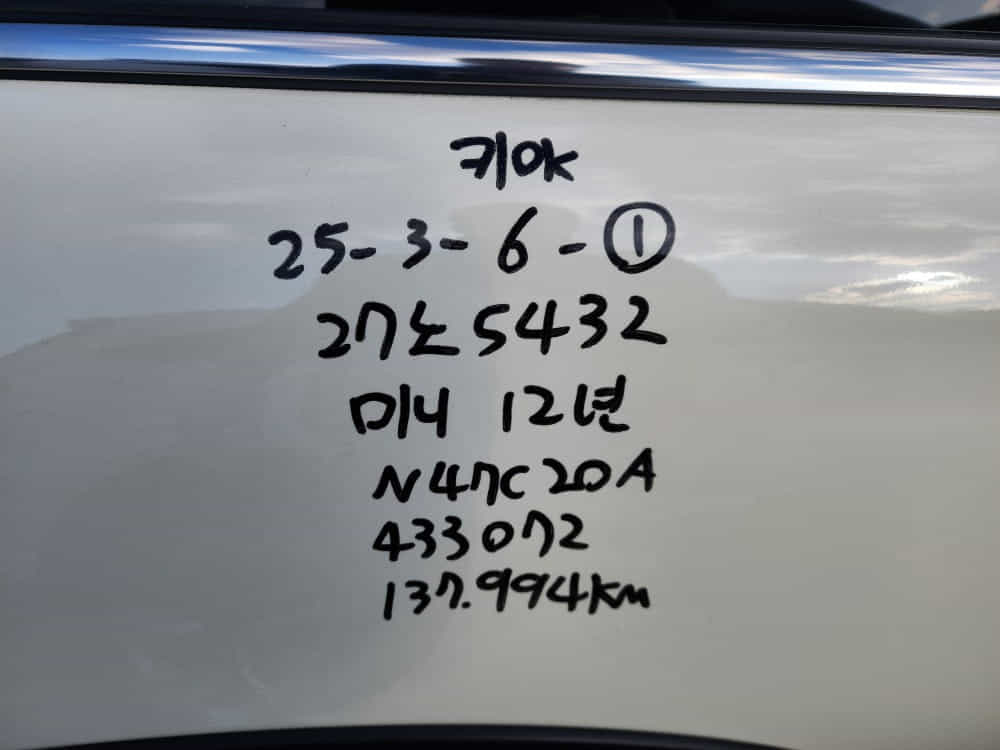 키OK
25-3-6-①
27노5432
미니 12년
N47C20A
433072
137.994km